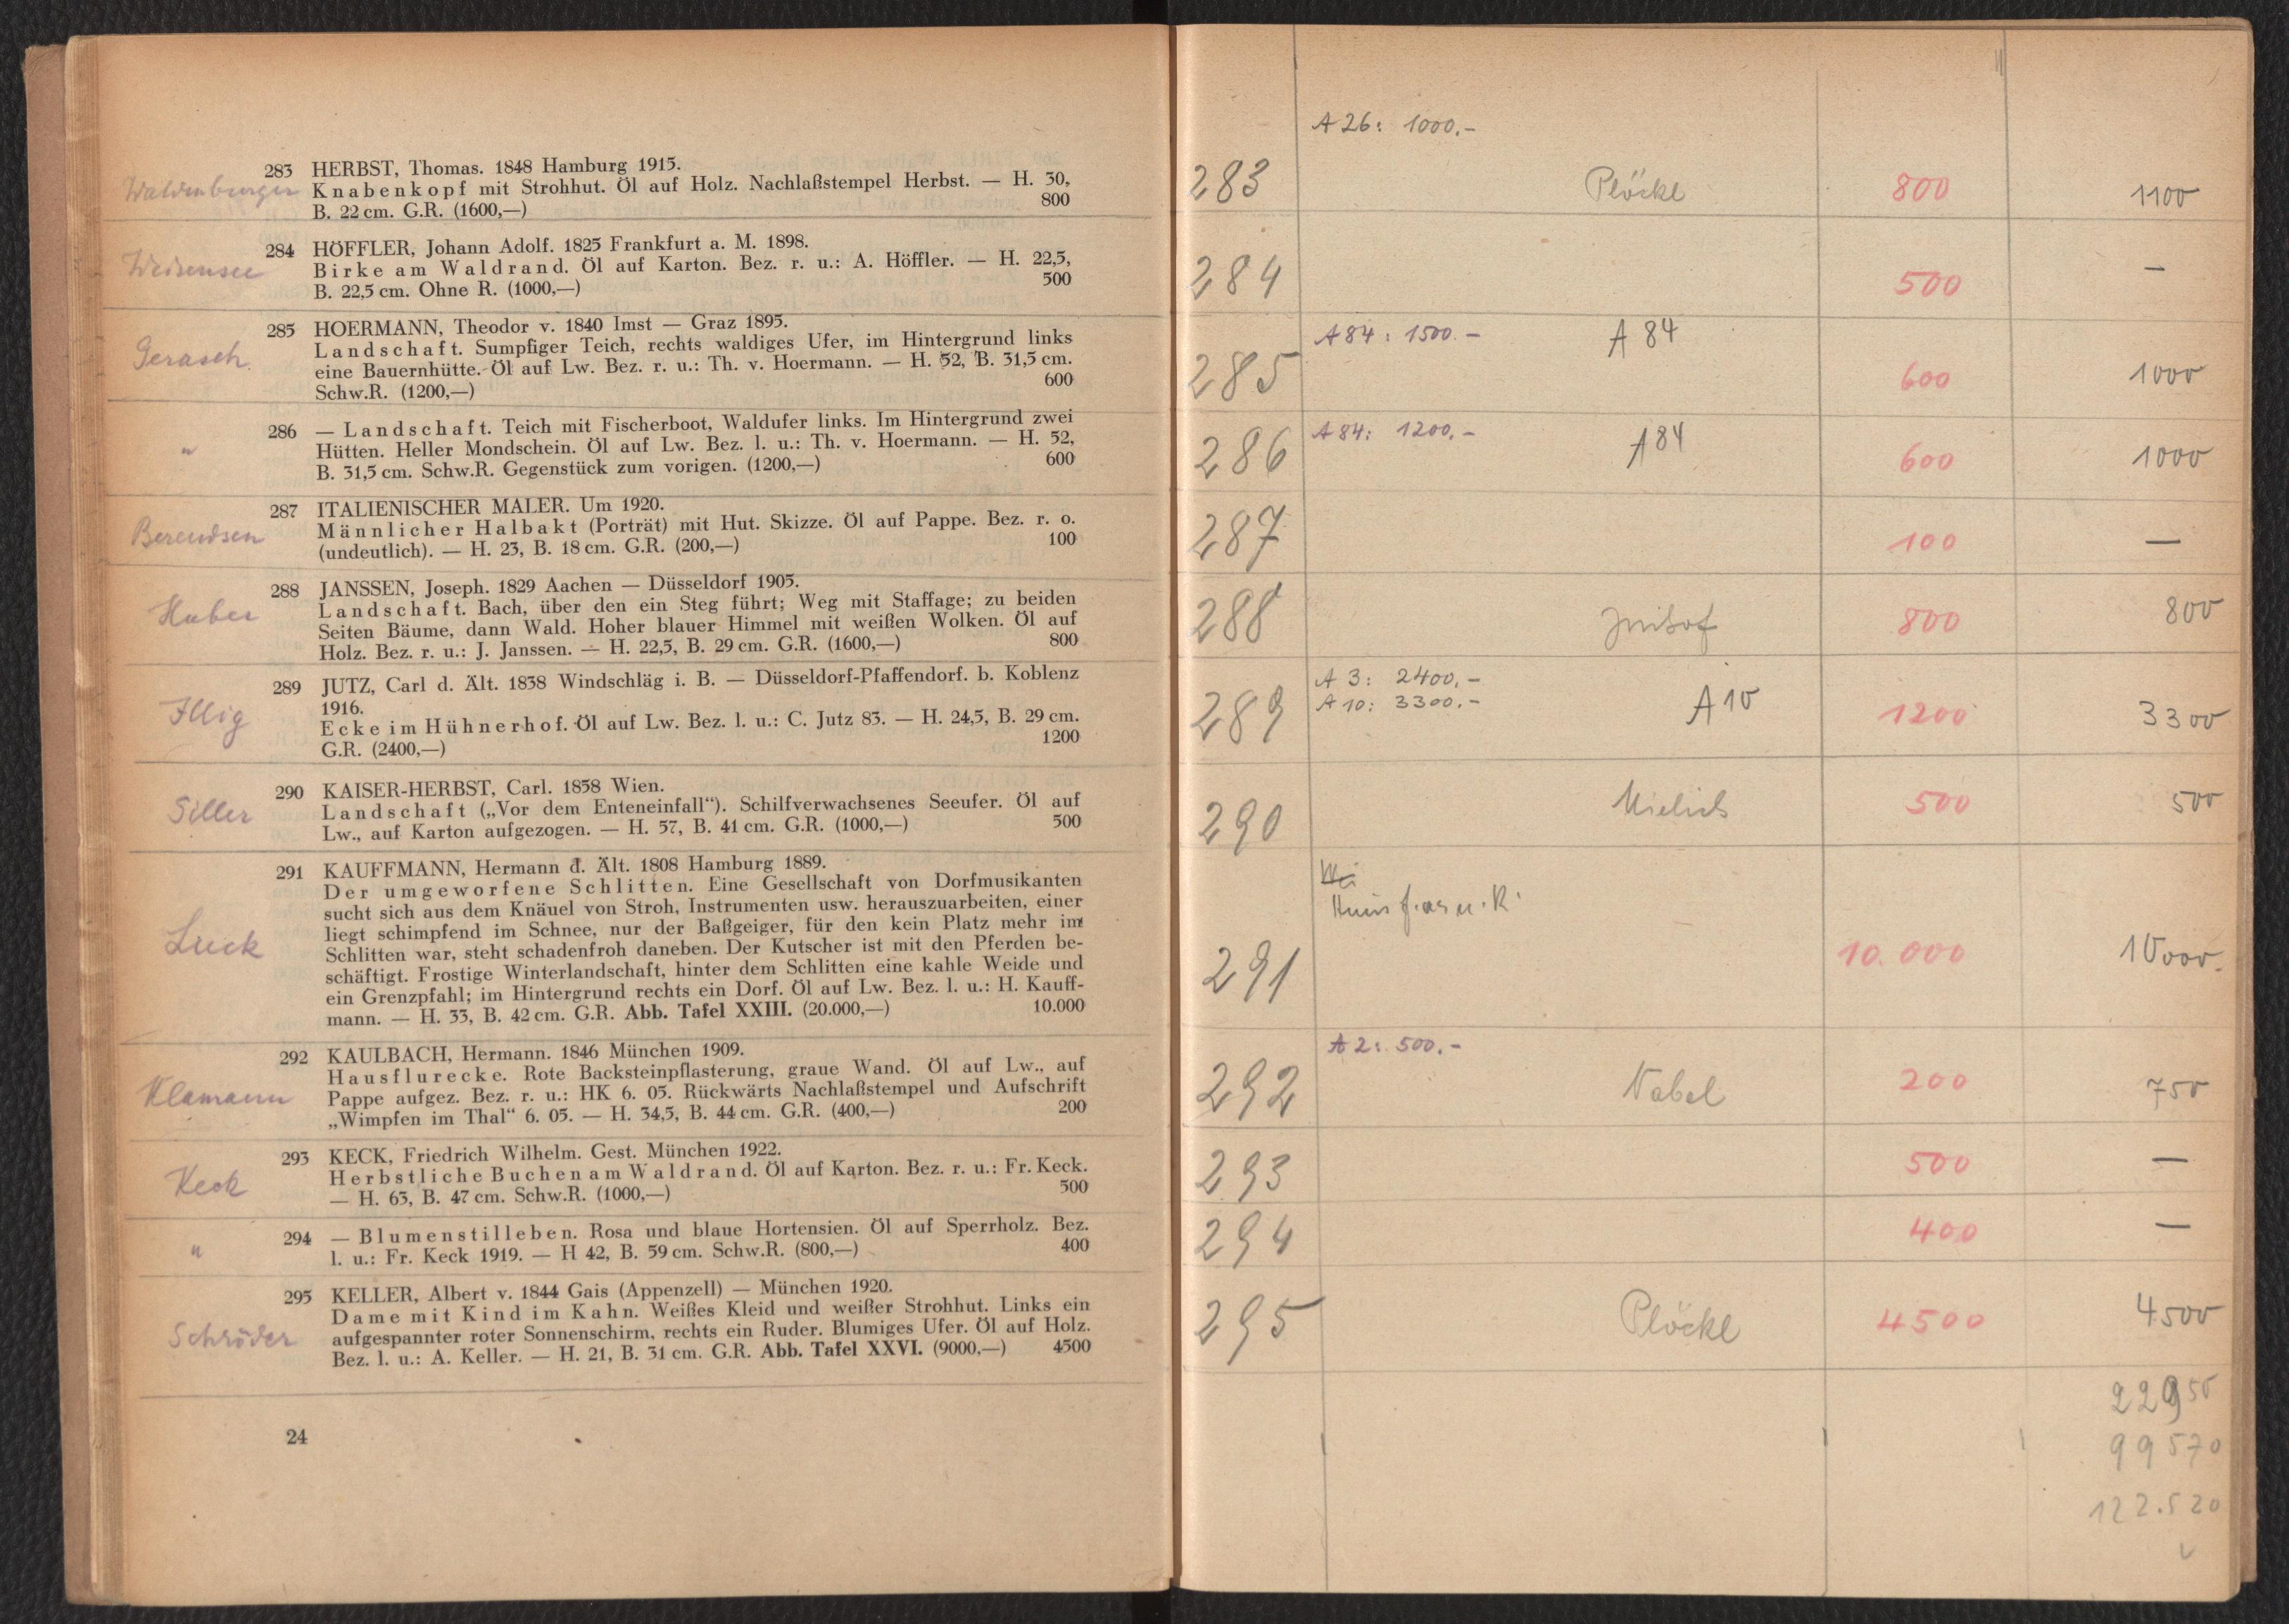 Waldenburger
283 HERBST, Thomas. 1848 Hamburg 1915.
Knabenkopf mit Strohhut. Öl auf Holz. Nachlaßstempel Herbst. — H. 30,
B. 22 cm. G.R. (1600,—) 800
Weisensee
284 HÖFFLER, Johann Adolf. 1825 Frankfurt a. M. 1898.
Birke am Waldrand. Öl auf Karton. Bez. r. u.: A. Höffler. — H. 22,5,
B. 22,5 cm. Ohne R. (1000,—) 500
Gerasch
285 HOERMANN, Theodor v. 1840 Imst — Graz 1895.
Landschaft. Sumpfiger Teich, rechts waldiges Ufer, im Hintergrund links
eine Bauernhütte. Öl auf Lw. Bez. r. u.: Th. v. Hoermann. — H. 52, B. 31,5 cm.
Schw.R. (1200,—) 600
"
286 — Landschaft. Teich mit Fischerboot, Waldufer links. Im Hintergrund zwei
Hütten. Heller Mondschein. Öl auf Lw. Bez. l. u.: Th. v. Hoermann. — H. 52,
B. 31,5 cm. Schw.R. Gegenstück zum vorigen. (1200,—) 600
Berendsen
287 ITALIENISCHER MALER. Um 1920.
Männlicher Halbakt (Porträt) mit Hut. Skizze. Öl auf Pappe. Bez. r. o.
(undeutlich). — H. 23, B. 18 cm. G.R. (200,—) 100
Huber
288 JANSSEN, Joseph. 1829 Aachen — Düsseldorf 1905.
Landschaft. Bach, über den ein Steg führt; Weg mit Staffage; zu beiden
Seiten Bäume, dann Wald. Hoher blauer Himmel mit weißen Wolken. Öl auf
Holz. Bez. r. u.: J. Janssen. — H. 22,5, B. 29 cm. G.R. (1600,—) 800
Illig
289 JUTZ, Carl d. Ält. 1838 Windschläg i. B. — Düsseldorf-Pfaffendorf. b. Koblenz
1916.
Ecke im Hühnerhof. Öl auf Lw. Bez. l. u.: C. Jutz 83. — H. 24,5, B. 29 cm.
G.R. (2400,—) 1200
Siller
290 KAISER-HERBST, Carl. 1858 Wien.
Landschaft („Vor dem Enteneinfall“). Schilfverwachsenes Seeufer. Öl auf
Lw., auf Karton aufgezogen. — H. 57, B. 41 cm. G.R. (1000,—) 500
Luck
291 KAUFFMANN, Hermann d. Ält. 1808 Hamburg 1889.
Der umgeworfene Schlitten. Eine Gesellschaft von Dorfmusikanten
sucht sich aus dem Knäuel von Stroh, Instrumenten usw. herauszuarbeiten, einer
liegt schimpfend im Schnee, nur der Baßgeiger, für den kein Platz mehr im
Schlitten war, steht schadenfroh daneben. Der Kutscher ist mit den Pferden be-
schäftigt. Frostige Winterlandschaft, hinter dem Schlitten eine kahle Weide und
ein Grenzpfahl; im Hintergrund rechts ein Dorf. Öl auf Lw. Bez. l. u.: H. Kauff-
mann. — H. 33, B. 42 cm. G.R. Abb. Tafel XXIII. (20.000,—) 10.000
Klamann
292 KAULBACH, Hermann. 1846 München 1909.
Hausflurecke. Rote Backsteinpflasterung, graue Wand. Öl auf Lw., auf
Pappe aufgez. Bez. r. u.: HK 6. 05. Rückwärts Nachlaßstempel und Aufschrift
„Wimpfen im Thal“ 6. 05. — H. 34,5, B. 44 cm. G.R. (400,—) 200
Keck
293 KECK, Friedrich Wilhelm. Gest. München 1922.
Herbstliche Buchen am Waldrand. Öl auf Karton. Bez. r. u.: Fr. Keck.
— H. 63, B. 47 cm. Schw.R. (1000,—) 500
"
294 — Blumenstilleben. Rosa und blaue Hortensien. Öl auf Sperrholz. Bez.
l. u.: Fr. Keck 1919. — H 42, B. 59 cm. Schw.R. (800,—) 400
Schröder
295 KELLER, Albert v. 1844 Gais (Appenzell) — München 1920.
Dame mit Kind im Kahn. Weißes Kleid und weißer Strohhut. Links ein
aufgespannter roter Sonnenschirm, rechts ein Ruder. Blumiges Ufer. Öl auf Holz.
Bez. l. u.: A. Keller. — H. 21, B. 31 cm. G.R. Abb. Tafel XXVI. (9000,—) 4500
24
A 26: 1000.-
283 Plöckl 800 1100
284 500 —
A 84: 1500.- A 84
285 600 1000
A 84: 1200.- A 84
286 600 1000
287 100 —
288 800 800
A 3: 2400.-
A 10: 3300.-
289 A 10 1200 3300
290 500 500
291 10.000 10000.
A 2: 500.-
292 Nabel 200 750
293 500 —
294 400 —
295 Plöckl 4500 4500
22950
99570
122.520